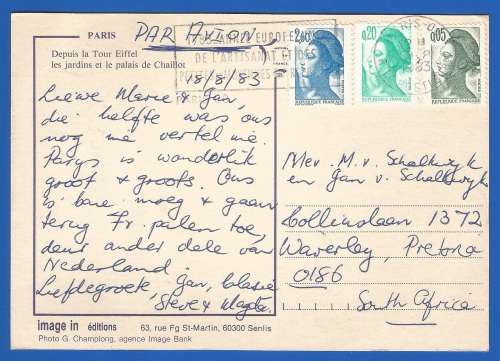 PARIS
PAR AVION
Depuis la Tour Eiffel
les jardins et le palais de Chaillot
1983 ANNEE EUROPEENNE
DE L'ARTISANAT ET DES
18/8/83
2,60
0,20
0,05
REPUBLIQUE FRANÇAISE
REPUBLIQUE FRANÇAISE
REPUBLIQUE FRANÇAISE
Liewe Marie & Jan,
die helfte was ons
nog me vertel nie.
Parys is wonderlik
groot & groots. Ons
is baie moeg & gaan
terug Fr. palen toe,
deur ander dele van
Nederland.
Liefdegroete, Jan,
Steve & Magda.
Mev. M.v. Schalkwyk
en Jan v. Schalkwyk
Collinslaan 1372
Waverley, Pretoria
0186
South Africa
image in éditions
63, rue Fg St-Martin, 60300 Senlis
Photo G. Champlong, agence Image Bank